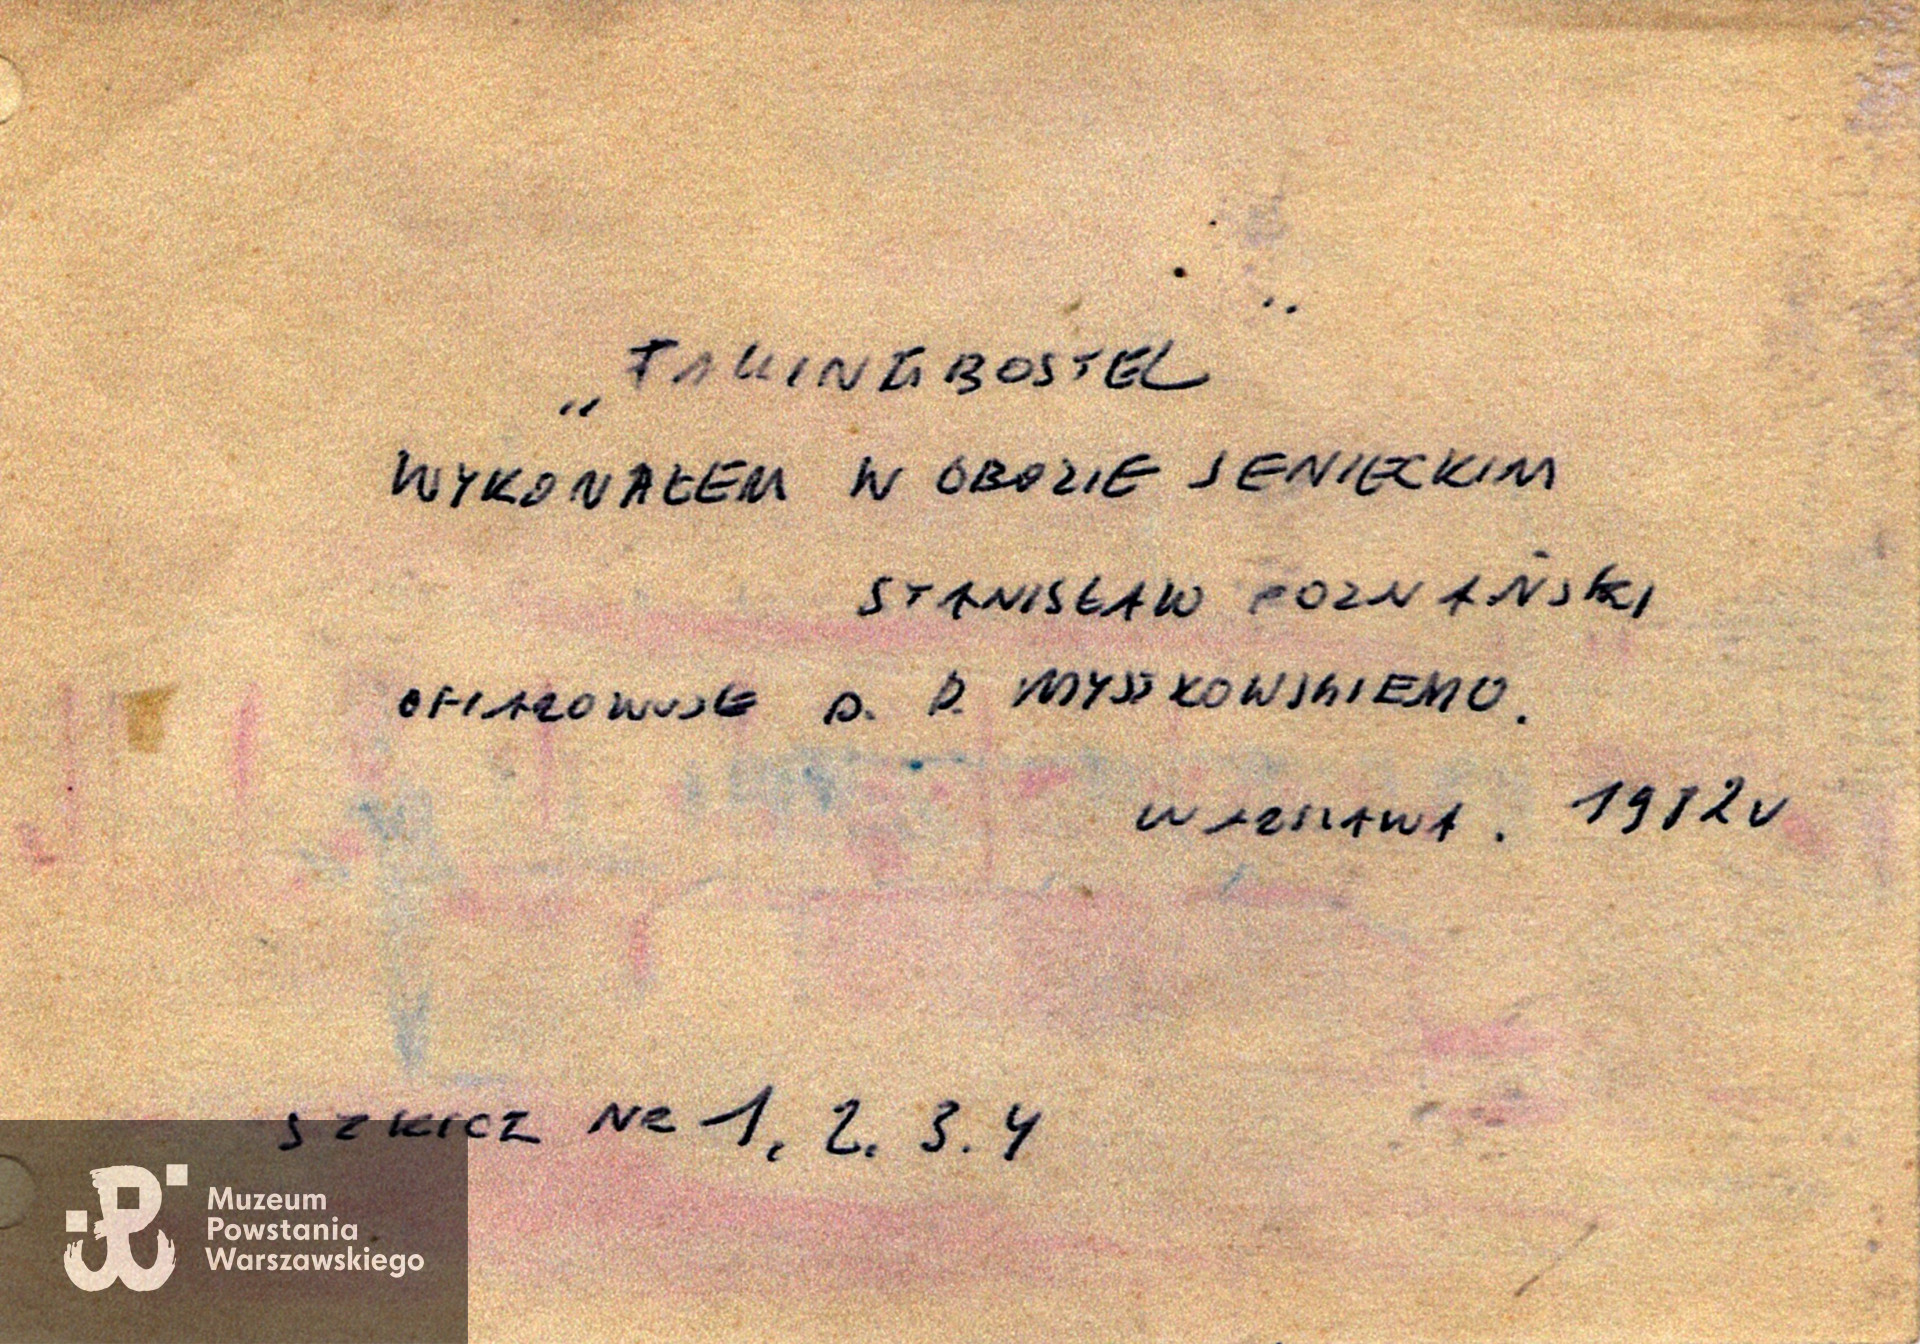 „FALLINGBOSTEL”
WYKONAŁEM W OBOZIE JENIECKIM
STANISŁAW POZNAŃSKI
OFIAROWUJE D. P. MYSZKOWSKIEMU.
WARSZAWA. 1982 r
SZKICZ NR 1, 2. 3. 4
Muzeum
Powstania
Warszawskiego